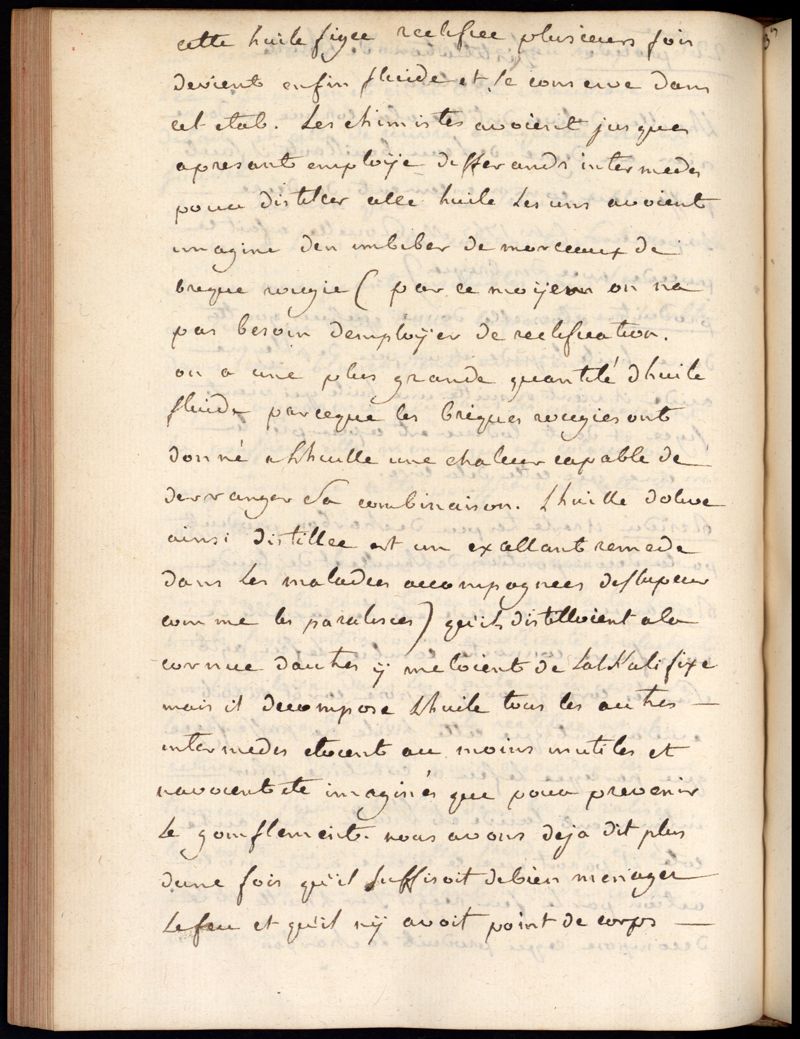 cette huile figee rectifiee plusieurs fois
devient enfin fluide et se conserve dans
cet etat. Les chimistes avoient jusques
apresant employe differands intermedes
pour distiller cette huile Les uns avoient
imagine den imbiber de morceaux de
brique rougie (par ce moyen on na
pas besoin demployer de rectification.
on a une plus grande quantité dhuile
fluide parceque les briques rougies ont
donné a Lhuille une chaleur capable de
derranger sa combinaison. Lhuille dolive
ainsi distillee est un exallant remede
dans Les maladies accompagnees de stupeur
comme les paralisies) quils distilloient a la
cornue dautres ÿ meloient de Lalkali fixe
mais il decompose Lhuile tous les autres —
intermedes etoient au moins inutiles et
navoient ete imaginés que pour prevenir
Le gomflement. nous avons deja dit plus
dune fois qu'il suffisoit de bien menager
Le feu et qu'il nÿ avoit point de corps —